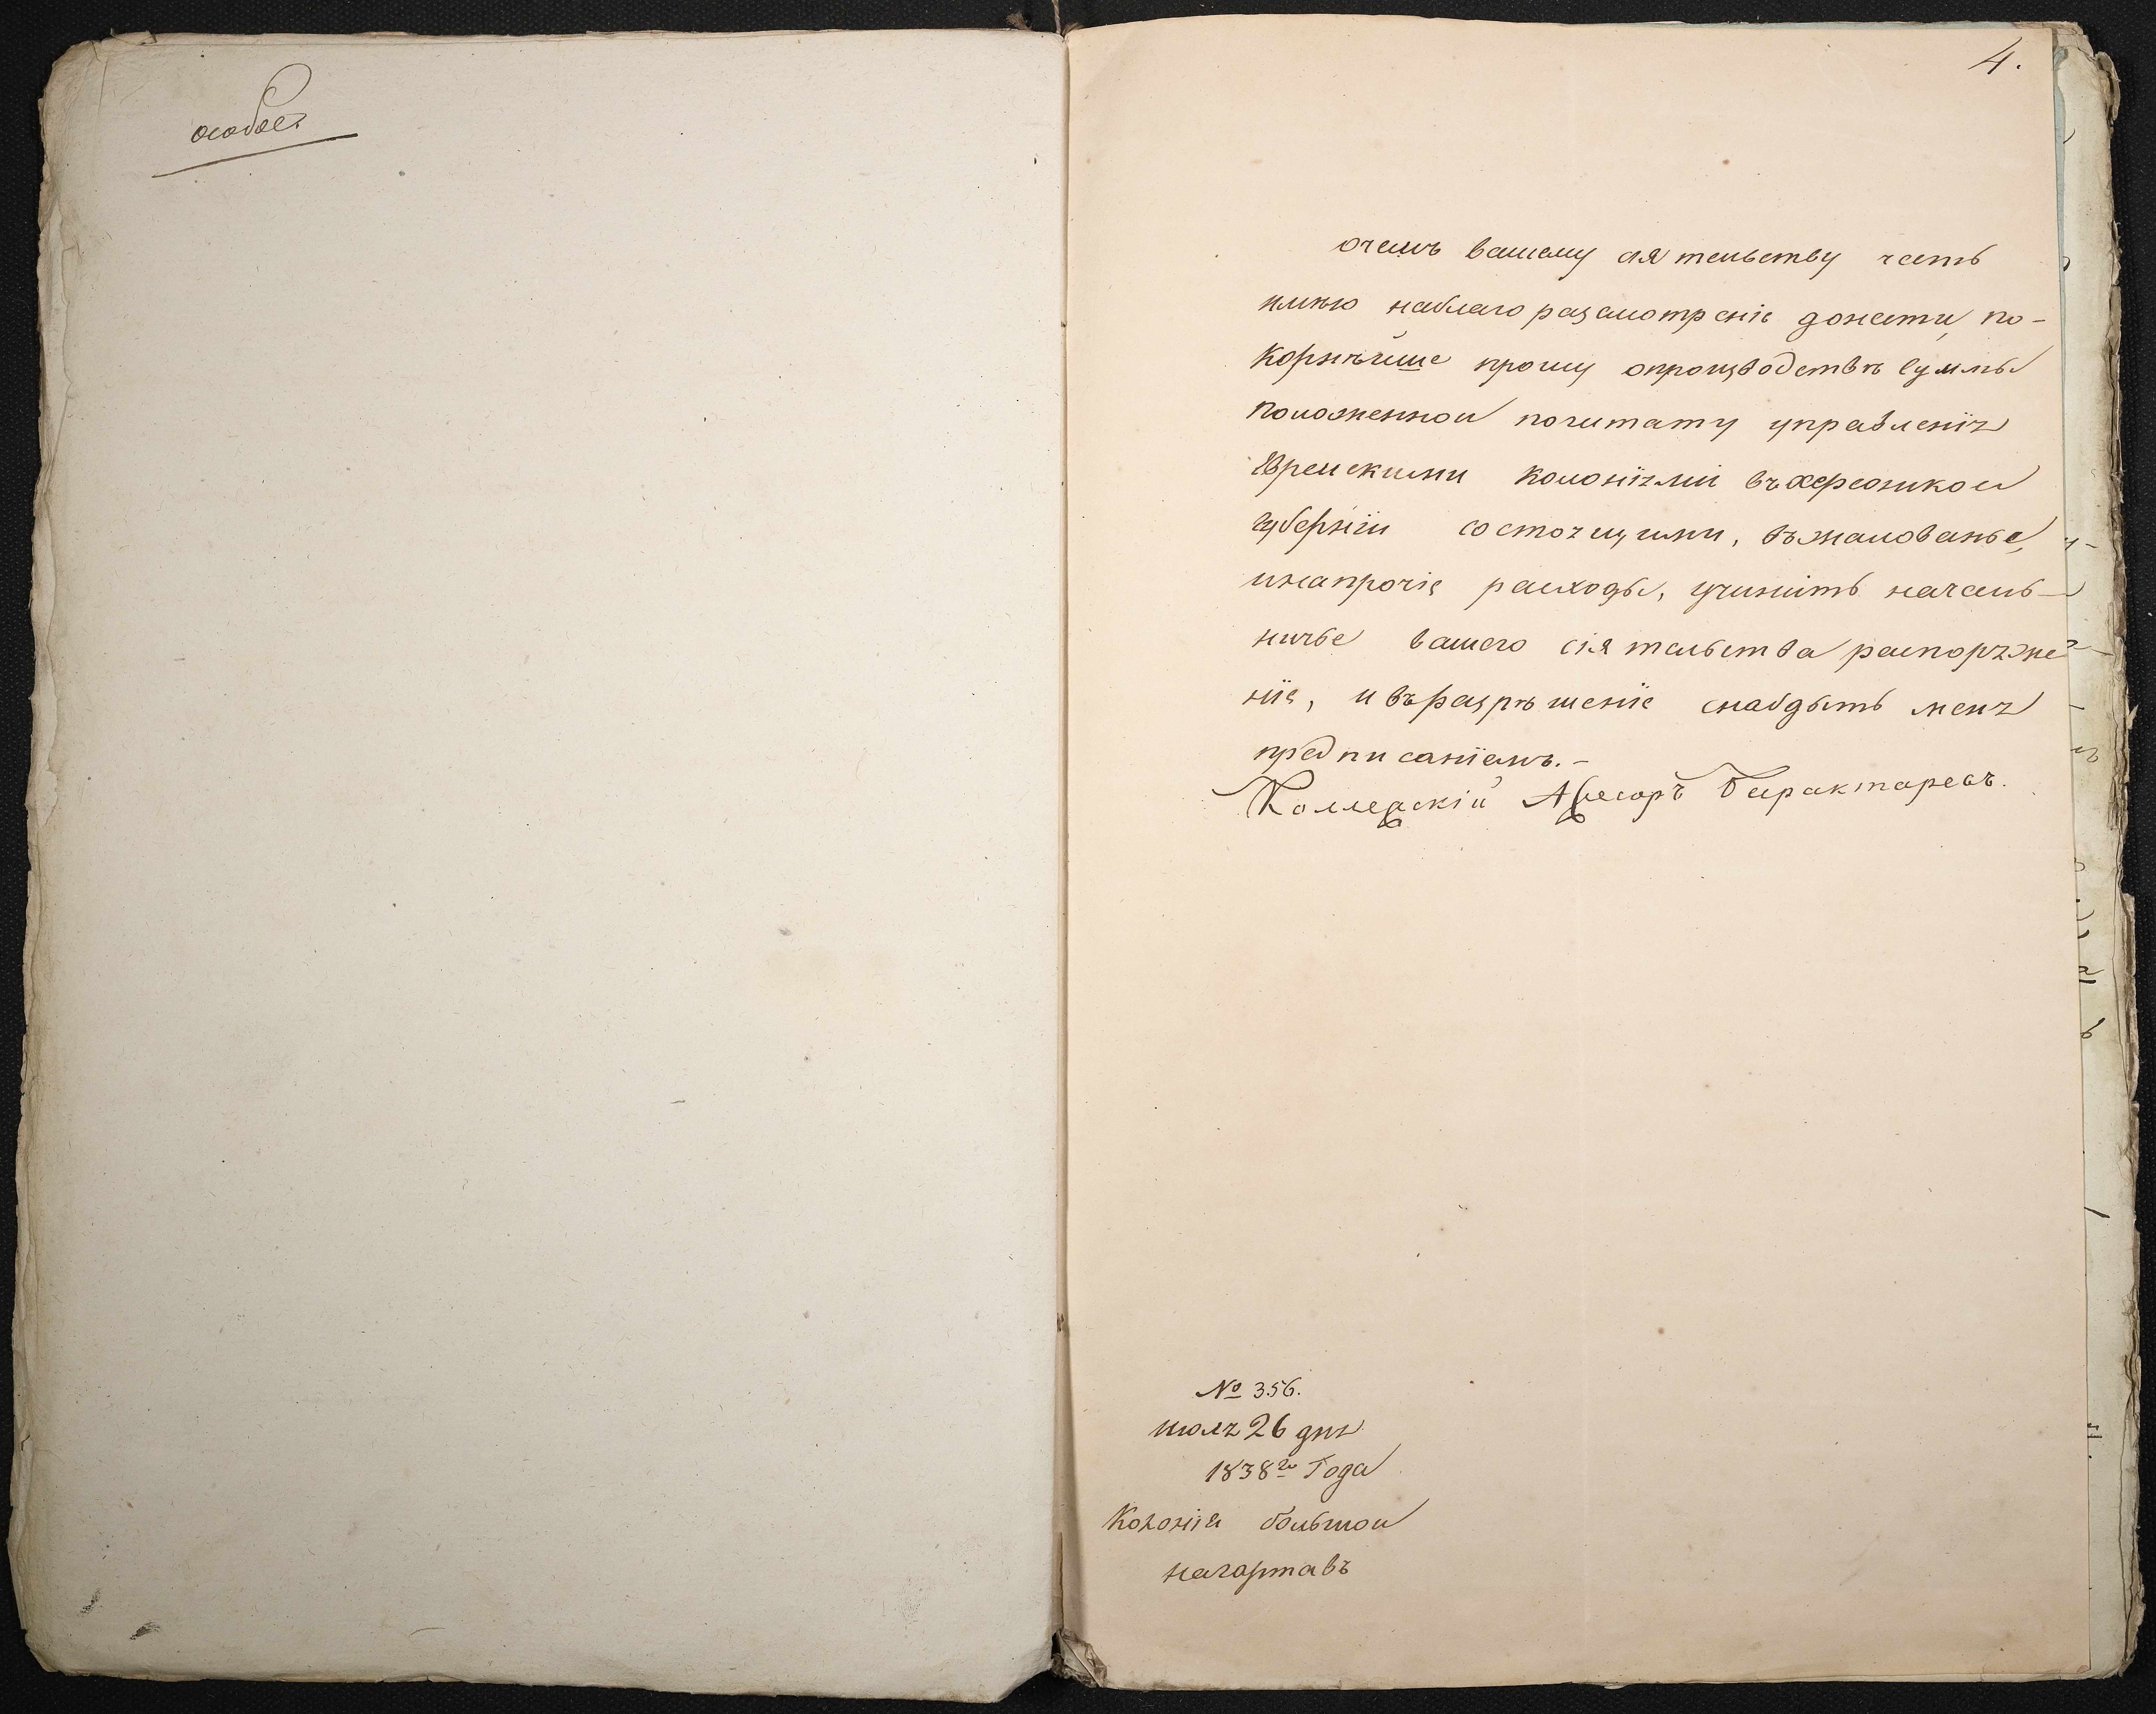 особое
4.
очемъ вашему сіятельству честь
имѣю наблагоразсмотреніе донести, по-
корнѣйше прошу опроизводствѣ суммы
положенной поштату управленія
Еврейскими колоніями въхерсонской
губерніи состоящими, въжалованье,
инапрочіе расходы, учинить началь-
ничье вашего сіятельства распоряже
ніе, ивъразрѣшеніе снабдѣть меня
предписаніемъ.-
Коллежскій Асесоръ Байрактаревъ.
№ 356.
июля 26 дня
1838го Года
Колонія большой
нагартавъ